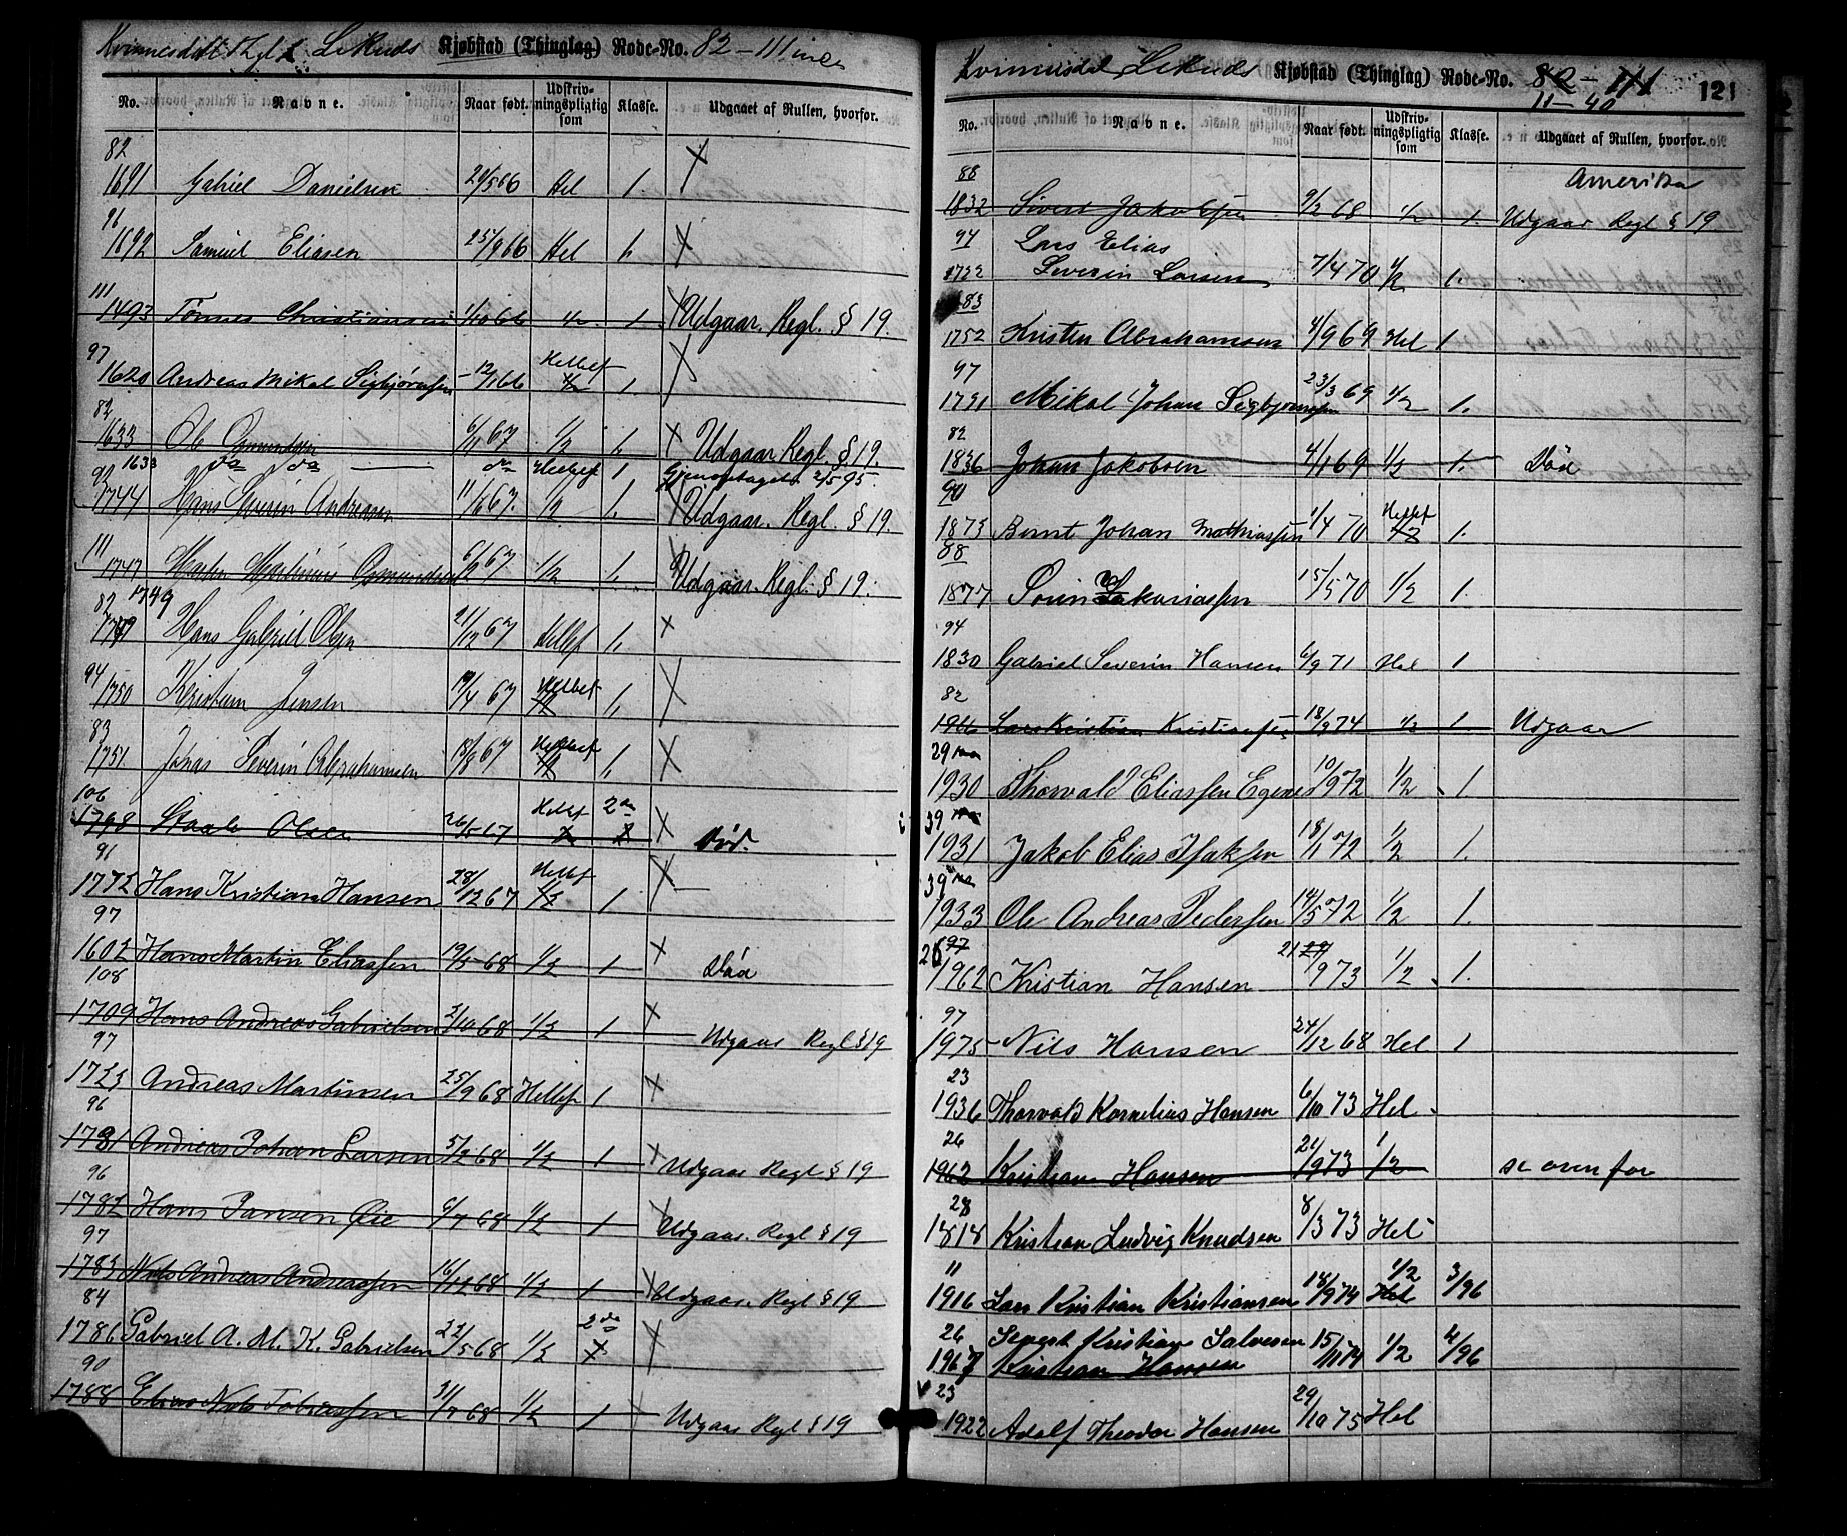 Kvinnesdal Thgl Lekneds Kjøbstad (Thinglag) Rode-No. 82 - 111 incl
No. Navne. Naar født. Udskrivningspligtig som Klasse. Udgaaet af Rullen, hvorfor.
82
1691 Gabriel Danielsen 5 66 Hel 1. X
96
1692 Samuel Eliasen 25/9 66 Hel 1. X
111
1493 Tønnes Christiansen 1/10 66 1/2 1 X Udgaar. Regl. § 19.
97
1620 Andreas Mikal Sigbjørnsen 12/1 66 Helbef 1/2 1. X
82
1633 Ole Gmundsen 6/11 67 1/2 1. X Udgaar Regl § 19.
1633 do do do Helbef 1 Gjenoptaget 2/5 95
92
1744 Hans Severin Andreasen 11/6 67. 1/2 1. X Udgaar. Regl. § 19.
111
1747 Martin Gmundsen 6/2 67 1/2 1. Udgaar. Regl. § 19.
82 1749
Hans Gabriel Olsen 21/12 67 Helbef 1. X
94
1750 Kristian Jensen 19/4 67 Helbef 1/2 1. X
83
1751 Johas Severin Abrahamsen 18/8 67 Helbef 1/2 1. X
106
1798 Staale Olsen 26/5 67 Helbef 1/2 2den X Død.
91
1772 Hans Kristian Hansen 28/12 67 Helbef 1/2 1 X
97
1602 Hans Martin Eliassen 19/5 68 1/2 1 X Død
108
1709 Hans Andreas Gabrielsen 2/10 68 1/2 1 X Udgaar Regl § 19
97
1723 Andreas Martinsen 25/9 68 Helbef 1 X
96
1781 Andreas Johan Larsen 5/2 68 1/2 1 X Udgaar Regl § 19
96
1782 Hans Jansen Øie 6/7 68 1/2 1 X Udgaar. Regl § 19
97
1783 Nils Andreas Andreassen 16/12 68 1/2 1 X Udgaar. Regl § 19
84
1786 Gabriel A. M. K. Gabrielsen 22/5 68 1/2 2de X
90
1788 Elias Nils Tobiassen 31/7 68 1/2 1 Udgaar Regl § 19
Kvinnesdal Lekneds Kjøbstad (Thinglag) Rode-No. 82 - 111 121
11-40
No. Navne. Naar født. Udskrivningspligtig som Klasse. Udgaaet af Rullen, hvorfor.
88 Amerika
1832 Sivert Jakobsen 9/2 68 1/2 1. Udgaar Regl § 19
94 Lars Elias
1722 Severin Larsen 7/4 70 1/2 1.
83
1752 Kristen Abrahamsen 4/9 69 Hel 1
97
1791 Mikal Johan Sigbjørnsen 23/3 69 1/2 1.
82
1836 Johan Jakobsen 4/1 69 1/2 1. Død
90
1873 Bernt Johan Mathiassen 1/4 70 Helbef 1/2 1.
88
1877 Søren Zakariassen 15/5 70 1/2 1
94
1830 Gabriel Severin Hansen 6/9 71 Hel 1
82
Lars Kristian Kristiansen 18/9 74 1/2 1. Udgaar
29
1930 Thorvald Eliassen Egenes 10/9 72 1/2 1
39
1931 Jakob Elias Isaksen 18/1 72 1/2 1.
39
1933 Ole Andreas Pedersen 14/5 72 1/2 1.
26 97
1962 Kristian Hansen 21/9 73 1/2 1.
97
1975 Nils Hansen 24/12 68 Hel 1
23
1936 Thorvald Kornelius Hansen 6/10 73 Hel
26
1962 Kristian Hansen 21/9 73 1/2 se ovenfor
28
1818 Kristian Ludvig Knudsen 8/3 73 Hel
11
1916 Lars Kristian Kristiansen 18/9 74 1/2 Hel 3/96
26 Sivert Kristian Salvesen 15/11 74 1/2 4/96
1967 Kristian Hansen
23
1922 Adolf Theodor Hansen 29/10 75 Hel